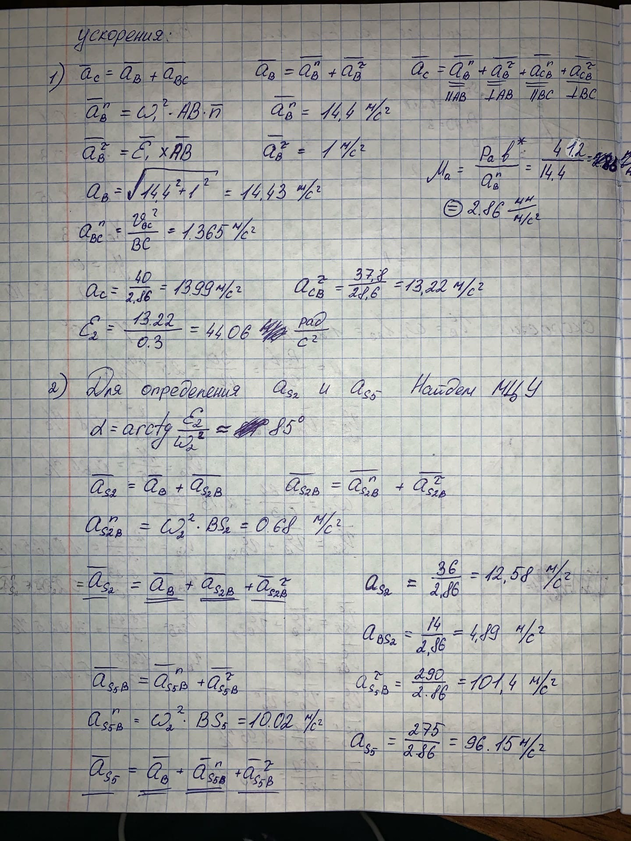 ускорения:
1) a̅_C = a̅_B + a̅_BC   a̅_B = a̅_B^n + a̅_B^τ   a̅_C = a̅_B^n + a̅_B^τ + a̅_CB^n + a̅_CB^τ
||AB ⊥AB ||BC ⊥BC
a̅_B^n = ω₁² · AB · n̅   a̅_B^n = 14,4 м/с²
a̅_B^τ = ε̅₁ × A̅B̅   a̅_B^τ = 1 м/с²
M_a = P_a b* / a_B^n = 41.2 / 14.4 =
= 2.86 мм / м/с²
a_B = √(14,4² + 1²) = 14,43 м/с²
a_BC^n = v_BC² / BC = 1.365 м/с²
a_C = 40 / 2,86 = 13.99 м/с²   a_CB^τ = 37,8 / 28,6 = 13,22 м/с²
ε₂ = 13.22 / 0.3 = 44.06 рад / с²
2) Для определения a_S2 и a_S5 Найдем МЦУ
α = arctg ε₂ / ω₂² ≈ 85°
a̅_S2 = a̅_B + a̅_S2B   a̅_S2B = a̅_S2B^n + a̅_S2B^τ
a̅_S2B^n = ω₂² · BS₂ = 0.68 м/с²
= a̅_S2 = a̅_B + a̅_S2B^n + a̅_S2B^τ   a_S2 = 36 / 2,86 = 12,58 м/с²
a_BS2 = 14 / 2,86 = 4,89 м/с²
a̅_S5B = a̅_S5B^n + a̅_S5B^τ   a_S5B^τ = 290 / 2.86 = 101,4 м/с²
a_S5B^n = ω₂² · BS₅ = 10.02 м/с²
a_S5 = 275 / 2.86 = 96.15 м/с²
a̅_S5 = a̅_B + a̅_S5B^n + a̅_S5B^τ